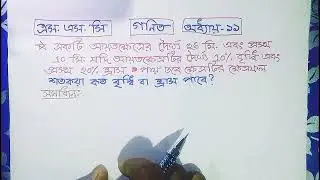 এস. এস. সি গণিত অধ্যায়-১১
একটি আয়তক্ষেত্রের দৈর্ঘ্য ২৫ মি. এবং প্রস্থ
২০ মি. যদি আয়তক্ষেত্রটির দৈর্ঘ্য ২০% বৃদ্ধি এবং
প্রস্থ ২০% হ্রাস পায় তবে ক্ষেত্রটির ক্ষেত্রফল
শতকরা কত বৃদ্ধি বা হ্রাস পাবে?
সমাধান: